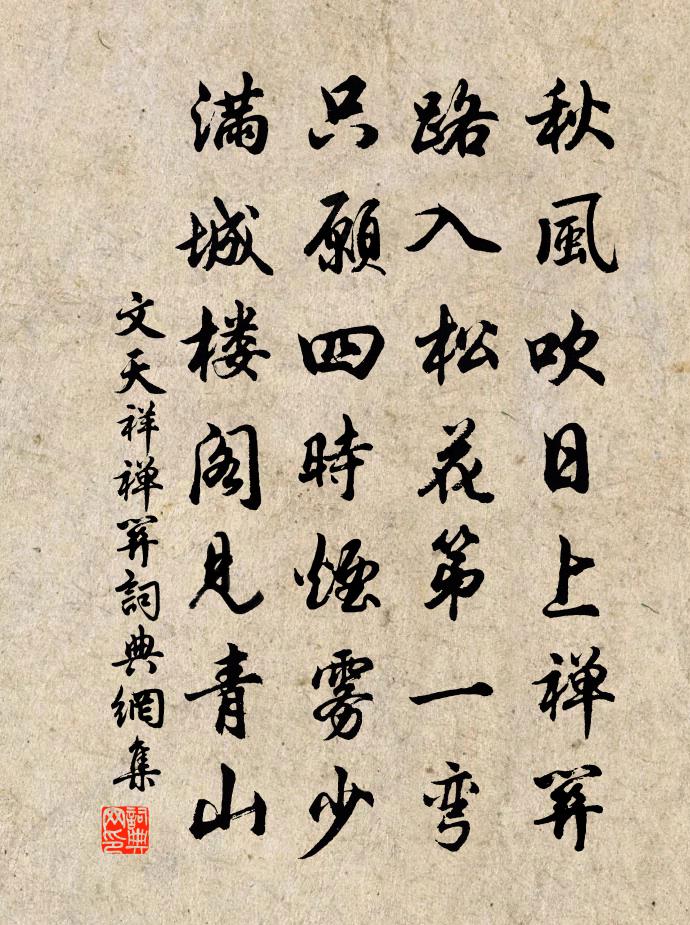 秋風吹日上禅关
路入松花第一弯
只願四時煙雾少
满城楼阁見青山
文天祥禅关詞典網集
詞典网印